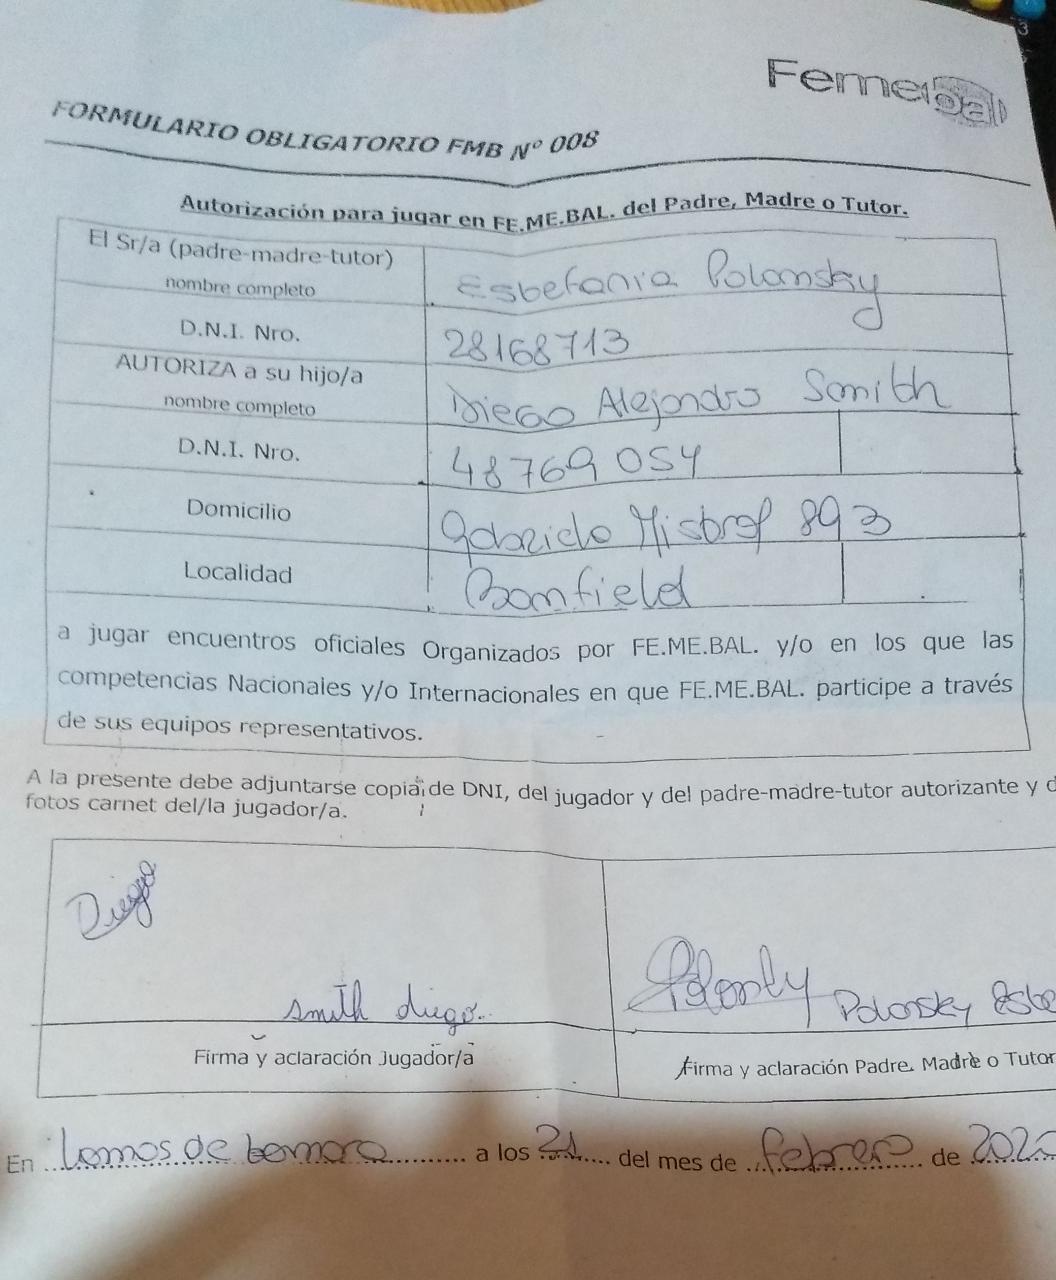 Femebal
FORMULARIO OBLIGATORIO FMB Nº 008
Autorización para jugar en FE.ME.BAL. del Padre, Madre o Tutor.
El Sr/a (padre-madre-tutor)
nombre completo
Estefania Polansky
D.N.I. Nro.
28168713
AUTORIZA a su hijo/a
nombre completo
Diego Alejandro Smith
D.N.I. Nro.
48769054
Domicilio
Gabriela Mistral 893
Localidad
Banfield
a jugar encuentros oficiales Organizados por FE.ME.BAL. y/o en los que las
competencias Nacionales y/o Internacionales en que FE.ME.BAL. participe a través
de sus equipos representativos.
A la presente debe adjuntarse copia de DNI, del jugador y del padre-madre-tutor autorizante y
fotos carnet del/la jugador/a.
Diego
smith diego
Polansky Polansky Este
Firma y aclaración Jugador/a
Firma y aclaración Padre, Madre o Tutor
En Lomas de Zamora a los 21 del mes de febrero de